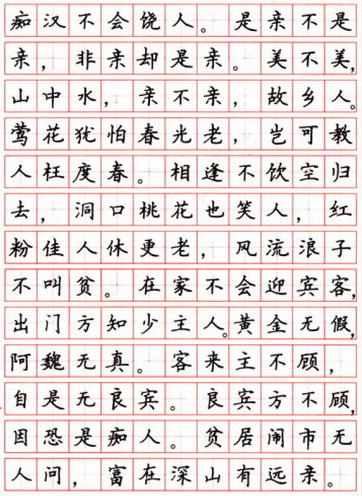 痴汉不会饶人。是亲不是
亲，非亲却是亲。美不美，
山中水，亲不亲，故乡人。
莺花犹怕春光老，岂可教
人枉度春。相逢不饮空归
去，洞口桃花也笑人，红
粉佳人休更老，风流浪子
不叫贫。在家不会迎宾客，
出门方知少主人。黄金无假，
阿魏无真。客来主不顾，
自是无良宾。良宾方不顾，
因恐是痴人。贫居闹市无
人问，富在深山有远亲。